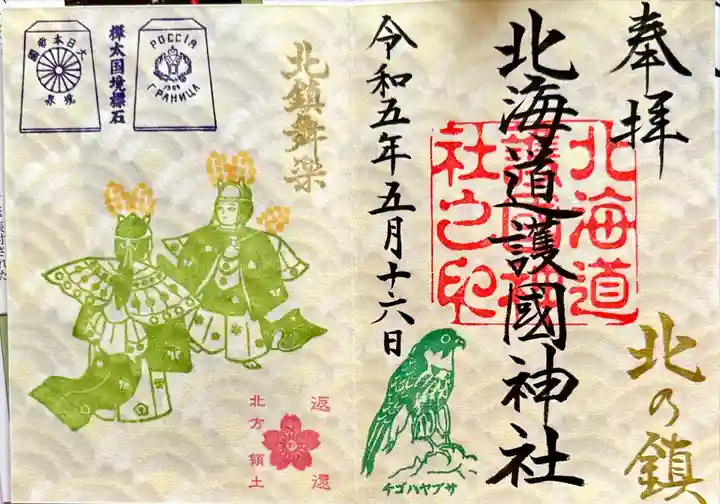 奉拝
北海道護國神社之印
北の鎮
北海道護國神社
令和五年五月十六日
チゴハヤブサ
北鎮舞楽
樺太国境標石
大日本帝國
境界
РОССІЯ
1906
ГРАНИЦА
返還
北方領土